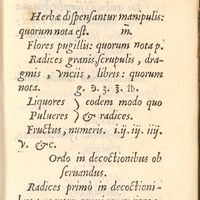 Herbæ dispensantur manipulis:
quorum nota est. m̃.
Flores pugillis: quorum nota p.
Radices granis, scrupulis, dra-
gmis, vnciis, libris: quorum
nota. g. ℈. ʒ. ℥. ℔.
Liquores } codem modo quo
Pulueres } & radices.
Fructus, numeris. i.ij. iij. iiij.
v. &c.
Ordo in decoctionibus ob
seruandus.
Radices primò in decoctioni-